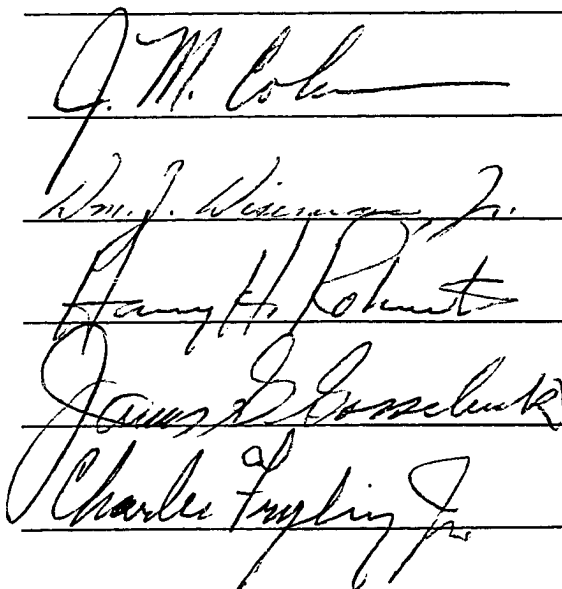 J. M. Coleman
Wm. J. Wiseman, Jr.
Harry H. Roberts
James G. Gosselink
Charles Fryling Jr.